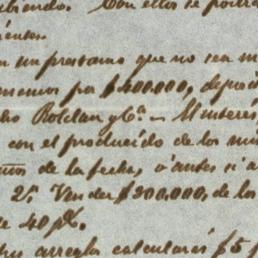 biendo. Con ellos se podria
ientos.
un prestamo que no sea m
menos por $400.000, deposi
cho Roldan y Ca. – Un interés
con el producido de los mis
años de la fecha, ó antes si a
2º Vender $200.000, de los
de 40 p%.
arreglo calcularás $5